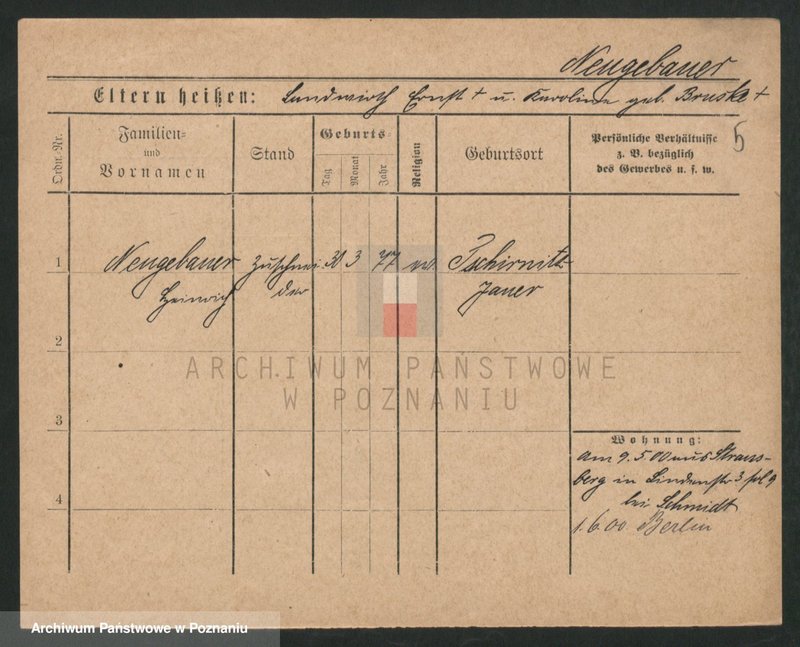 Neugebauer
Eltern heißen: Landwirth Ernst † u. Karoline geb. Bruske †
5
Ordn.-Nr.
Familien-
und
Vornamen
Stand
Geburts-
Tag
Monat
Jahr
Religion
Geburtsort
Persönliche Verhältnisse
z. B. bezüglich
des Gewerbes u. s. w.
1
Neugebauer Zuschnei- 3 77 Tschirnitz
Heinrich der Jauer
2
ARCHIWUM PAŃSTWOWE
W POZNANIU
3
Wohnung:
am 9.5.00 aus Straus-
berg in Lindenstr 3
4
bei Schmidt
1.6.00 Berlin
Archiwum Państwowe w Poznaniu